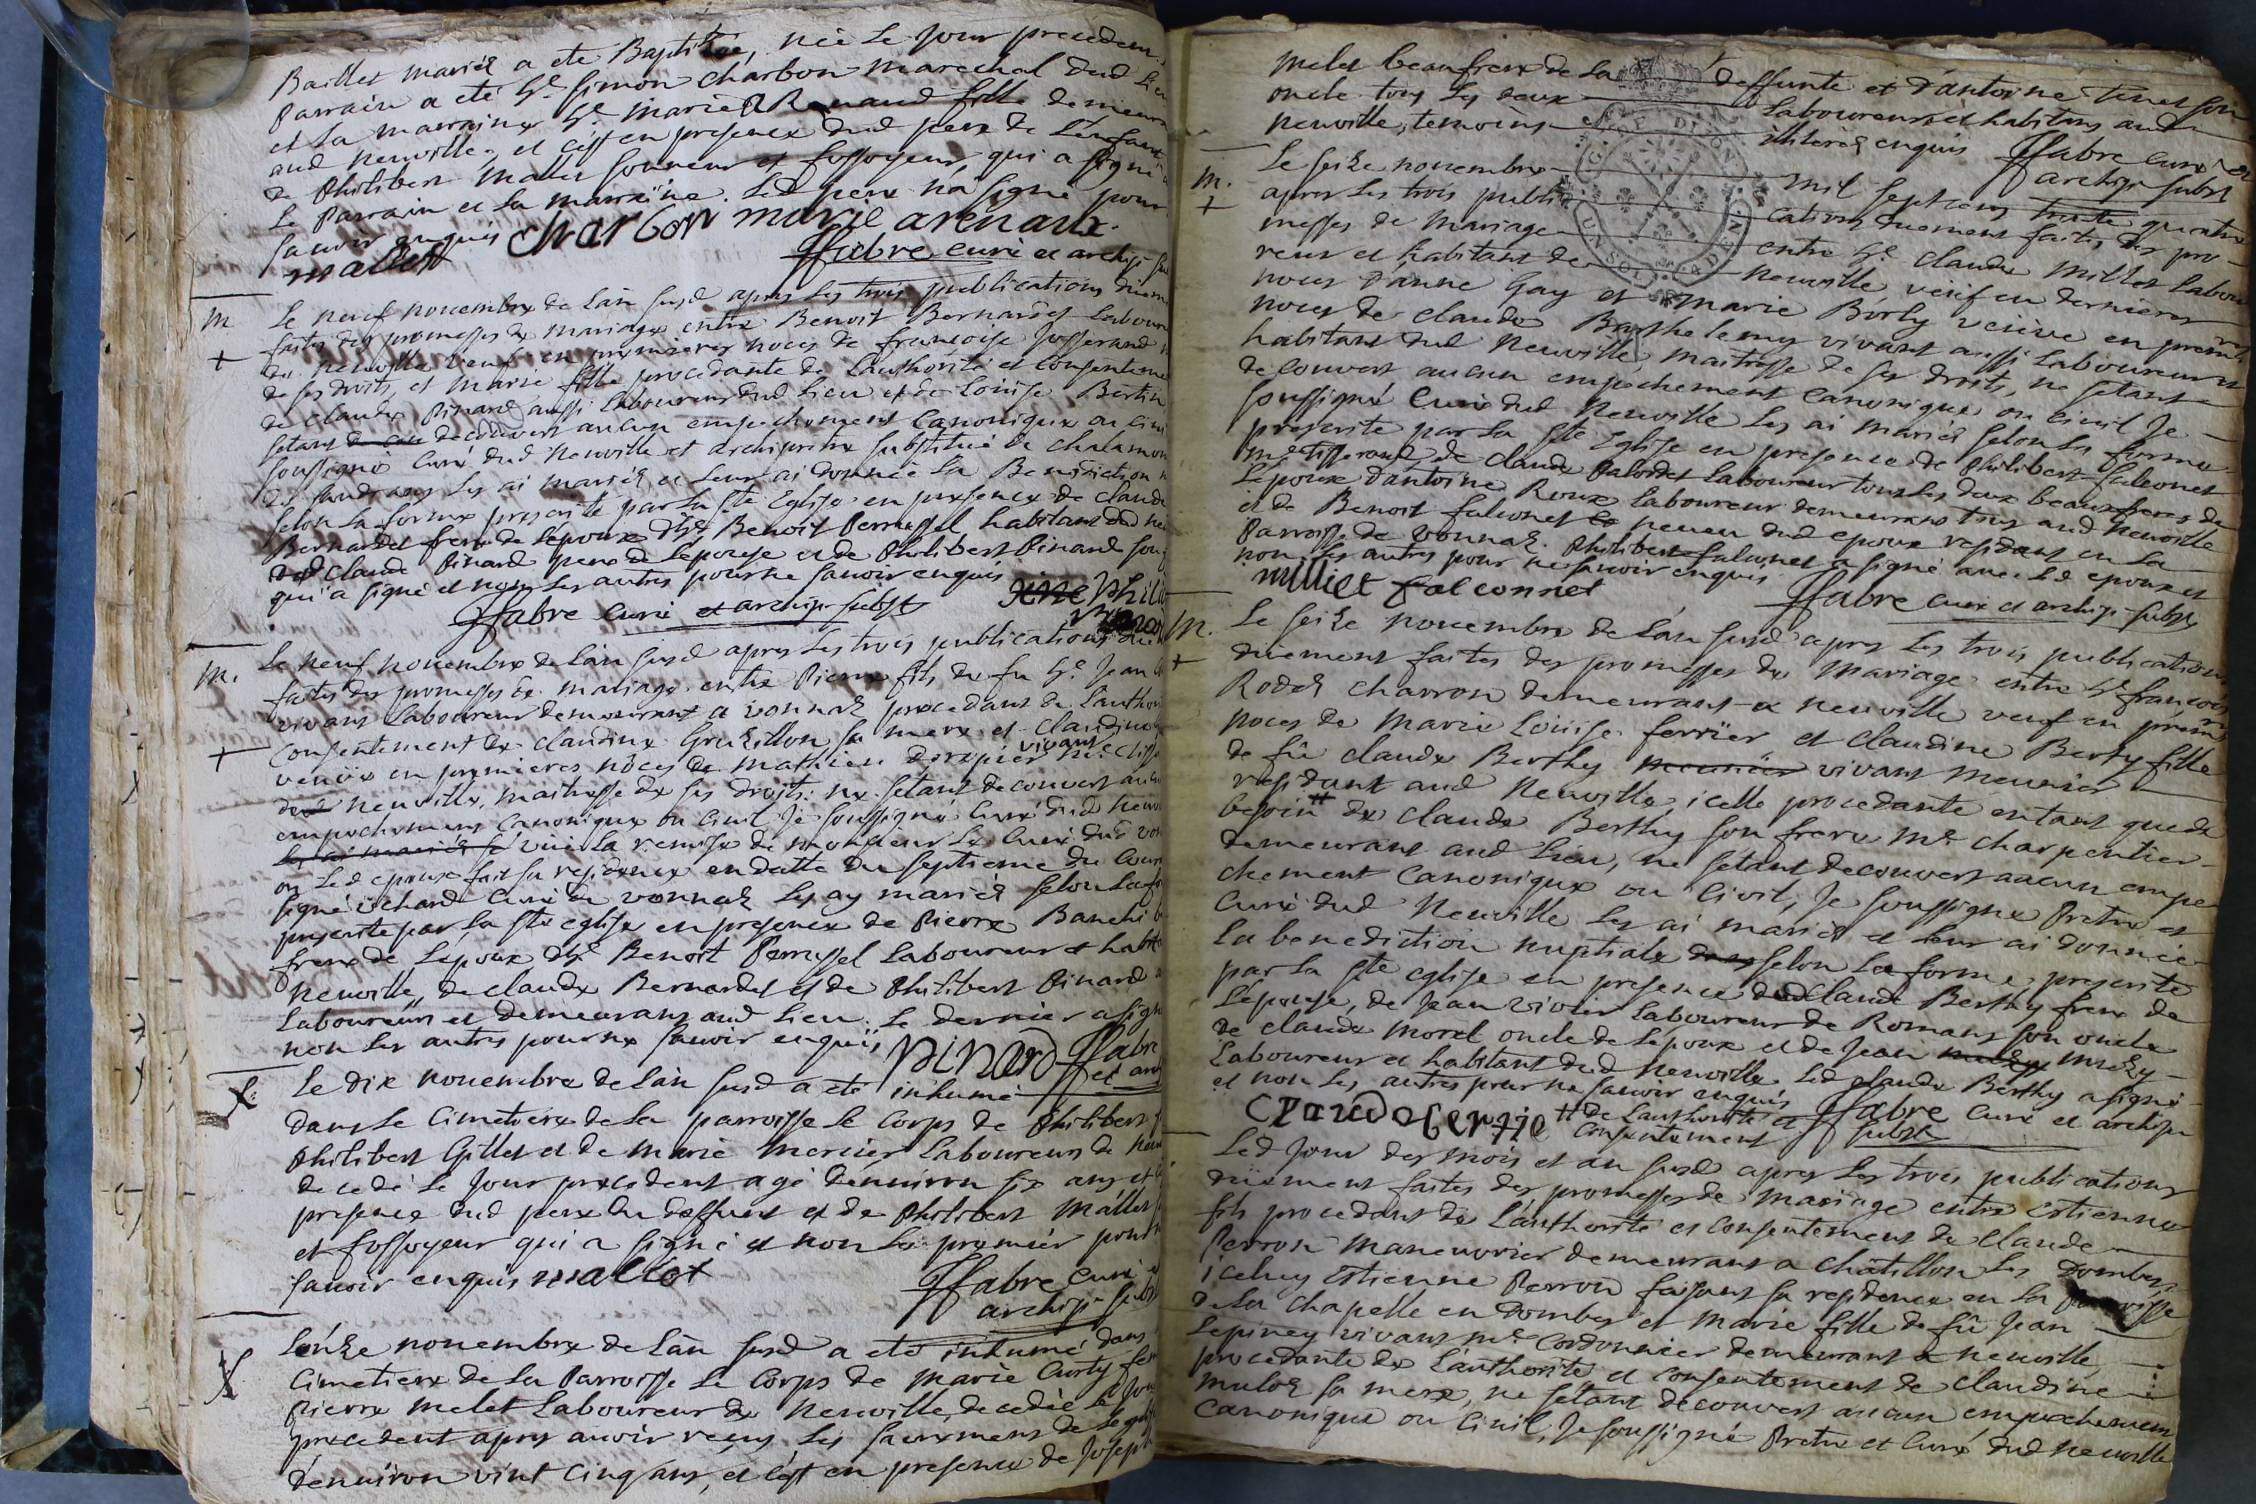 Baillet mariés a été Baptisée, née le jour precedent
Parrain a été hte Simon Charbon marechal dud lieu
et la marraine hte Marie Renaud fille demeurant
aud Neuville et cest en presence dud pere de Lenfant
de Philibert Mallet sonneur et fossoyeur, qui a signé
Le Parrain et la marraine. Led pere na signé pour
savoir enquis charbon marie arenaux.
mallet ffabre curé et archip
m Le neuf novembre de Lan susd apres les trois publications
faites des promesses de mariage entre Benoit Bernardet Labour
de Neuville veuf en premieres noces de francoise Josserand
de ses droits, et Marie fille procedante de Lauthorité et consenteme
de claude Pinard aussi Laboureur dud lieu et de Louise Bertin
setant decouvert aucun empechement canonique ou civil
soussigné Curé dud Neuville et archiprêtre substitué de chalamon
les ai mariés et leur ai donnée la Benediction
selon la forme prescrite par la ste Eglise en presence de claude
Bernardet frere de Lepoux hte Benoit Perrussel habitant
claude Pinard pere de Lepouse et de Philibert Pinard
qui a signé et non les autres pour ne savoir enquis
ffabre curé et archip subst
m. Le neuf novembre de Lan susd apres les trois publications
faites des promesses de mariage entre Pierre fils de fu hte Jean
vivant Laboureur demeurant a vonnas procedant de Lauthori
consentement de claudine Gruzillon sa mere et claudine
veuve en premieres nôces de mathieu vivant
Neuville, maitresse de ses droits: ne setant decouvert aucun
empechement canonique ou civil Je soussigné Curé dud Neuv
veüe la remise de monsieur Le Curé dud
ou Led epoux fait sa residence en datte du septieme du Cour
signé curé de vonnas Les ay mariés selon la fo
prescrite par la ste eglise en presence de Pierre
frere de Lepoux hte Benoit Perrussel Laboureur et habit
Neuville, de claude Bernardet et de Philibert Pinard
Laboureurs et demeurans aud Lieu. Le dernier a signé
non les autres pour ne savoir enquis pinard ffabre
Le dix novembre de Lan susd a été inhumé
dans Le Cimetiere de la parroisse le corps de Philibert
Philibert Gillet et de Marie mercier Laboureurs de
decedé le Jour precedent agé denviron six ans et
presence dud pere du deffunt et de Philibert Mallet
et fossoyeur qui a signé et non le premier pour
savoir enquis mallet ffabre curé
archip subst
Lonze novembre de Lan susd a été inhumé dans
Cimetiere de la Parroisse le Corps de Marie Curty
Pierre Melet Laboureur de Neuville, decedée le Jour
precedent apres avoir reçus Les sacremens de
denviron vint cinq ans, et cest en presence de Joseph
Melet beaufrere de la deffunte et dantoine tenet son
oncle tous les deux Laboureurs et habitans aud
Neuville, temoins illiterés enquis ffabre curé et
archip subst
m. Le seize novembre mil sept cens trente quatre
apres Les trois publications duement faites des pro-
messes de mariage entre hte claude Millet Labou
reur et habitant de Neuville, veuf en dernieres
noces danne Gay et Marie Borly veuve en premieres
noces de claude Barthelemy vivant aussi Laboureur et
habitant dud Neuville, maitresse de ses droits, ne setant
decouvert aucun empechement canonique ou civil Je
soussigné Curé dud Neuville les ai mariés selon la forme
prescrite par la ste Eglise en presence de Philibert falconet
me tisserand de claude Palordet Laboureur tous les deux beaux freres de
Lepoux dantoine Roux Laboureur demeurans tous aud Neuville
et de Benoit falconet neveu dud epoux residant en la
Parroisse de vonnas. Philibert falconet a signé avec Led epoux et
non les autres pour ne savoir enquis
milliet falconnet ffabre curé et archip. subst
m. Le seize novembre de Lan susd apres les trois publications
duement faites des promesses de mariage entre hte francois
Rodet charron demeurant a Neuville veuf en premieres
noces de Marie Loüise ferrier, et claudine Berty fille
de fû claude Berthy vivant meunier
residant aud Neuville, icelle procedante entant que de
besoin # de claude Berthy son frere me charpentier
demeurant aud Lieu, ne setant decouvert aucun empe
chement canonique ou civil, Je soussigné Pretre et
Curé dud Neuville les ai mariés et leur ai donnée
La benediction nuptiale selon la forme prescrite
par la ste eglise en presence dud Claude Berthy frere de
Lépouse, de Jean vivier Laboureur de Romans son oncle
de claude Morel oncle de Lepoux et de Jean
Laboureur et habitant dud Neuville, Led claude Berthy a signé
et non les autres pour ne savoir enquis
# de Lauthorité et consentement ffabre curé et archip
subst
Led Jour des mois et an susd apres les trois publications
duëment faites des promesses de mariage entre estienne
fils procedant de Lauthorité et consentement de claude
Perron manouvrier demeurant a chatillon Les Dombes,
iceluy estienne Perron faisant sa residence en la parroisse
de la chapelle en Dombes et Marie fille de fû Jean
Lepiney vivant me cordonnier demeurant a Neuville,
procedante de Lauthorité et consentement de claudine
sa mere, ne setant decouvert aucun empechement
canonique ou civil, Je soussigné Pretre et Curé dud Neuville